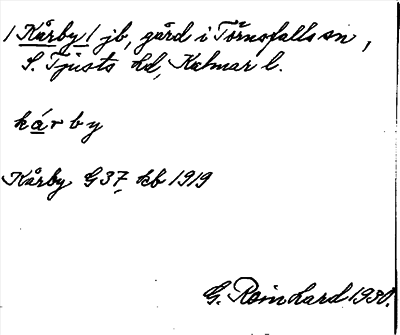 /Kårby/ jb, gård i Törnsfalls sn,
S. Tjusts hd, Kalmar l.
kárby
Kårby G 37, kb 1919
G. Reinhard 1930.